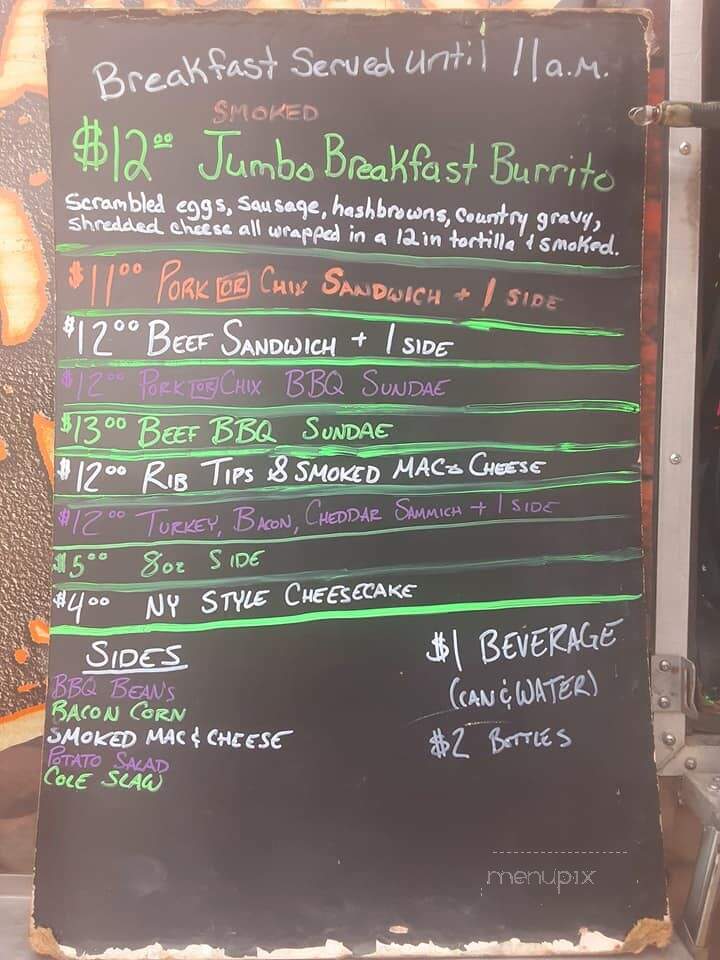 Breakfast Served until 11a.m.
SMOKED
$12.00 Jumbo Breakfast Burrito
Scrambled eggs, sausage, hashbrowns, country gravy,
shredded cheese all wrapped in a 12in tortilla & smoked.
$11.00 PORK OR CHIX SANDWICH + 1 SIDE
$12.00 BEEF SANDWICH + 1 SIDE
$12.00 PORK OR CHIX BBQ SUNDAE
$13.00 BEEF BBQ SUNDAE
$12.00 RIB TIPS & SMOKED MAC & CHEESE
$12.00 TURKEY, BACON, CHEDDAR SAMMICH + 1 SIDE
$5.00 8oz SIDE
$4.00 NY STYLE CHEESECAKE
SIDES
BBQ BEANS
BACON CORN
SMOKED MAC & CHEESE
POTATO SALAD
COLE SLAW
$1 BEVERAGE
(CAN & WATER)
$2 BOTTLES
menupix